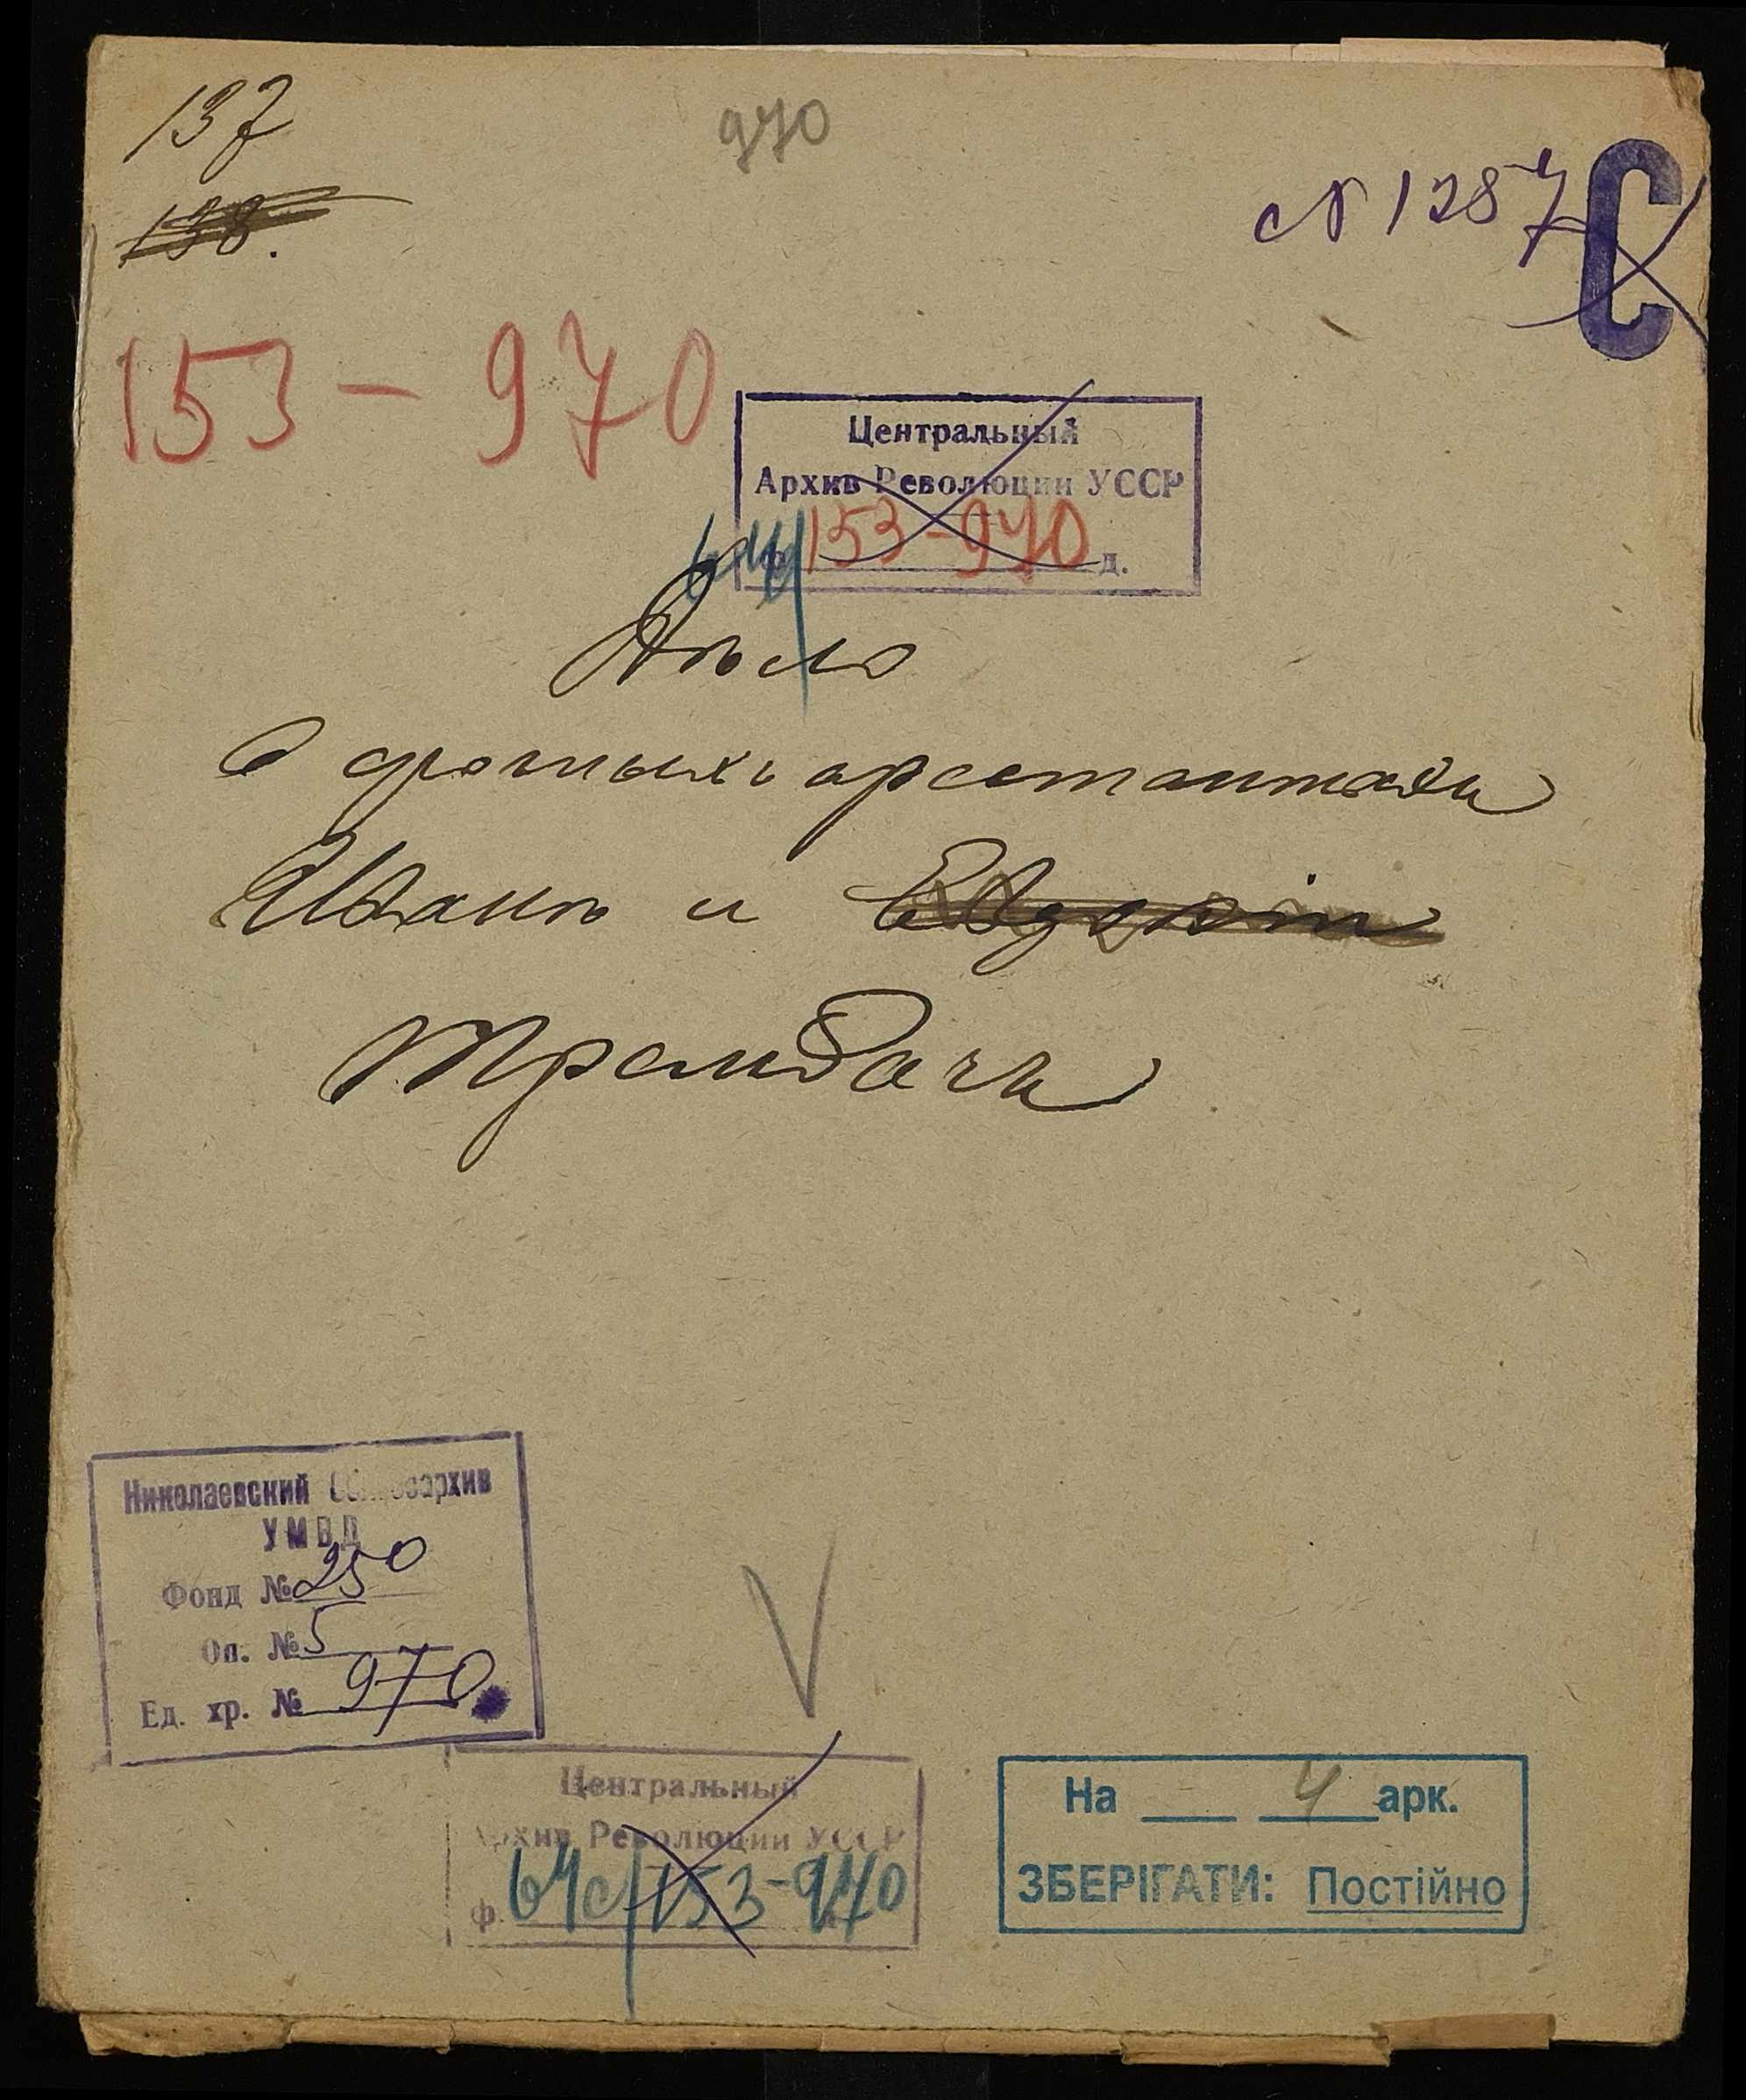 137
970
138.
№ 1287
С
153-970
Центральный
Архив Революции УССР
153-970 д.
Дѣло
О срочныхъ арестантахъ
Иванѣ и Евдокіи
Трембачъ
Николаевский Облгосархив
УМВД
Фонд № 250
Оп. № 5
Ед. хр. № 970
V
Центральный
Архив Революции УССР
ф. 64с/153-970
На 4 арк.
ЗБЕРІГАТИ: Постійно